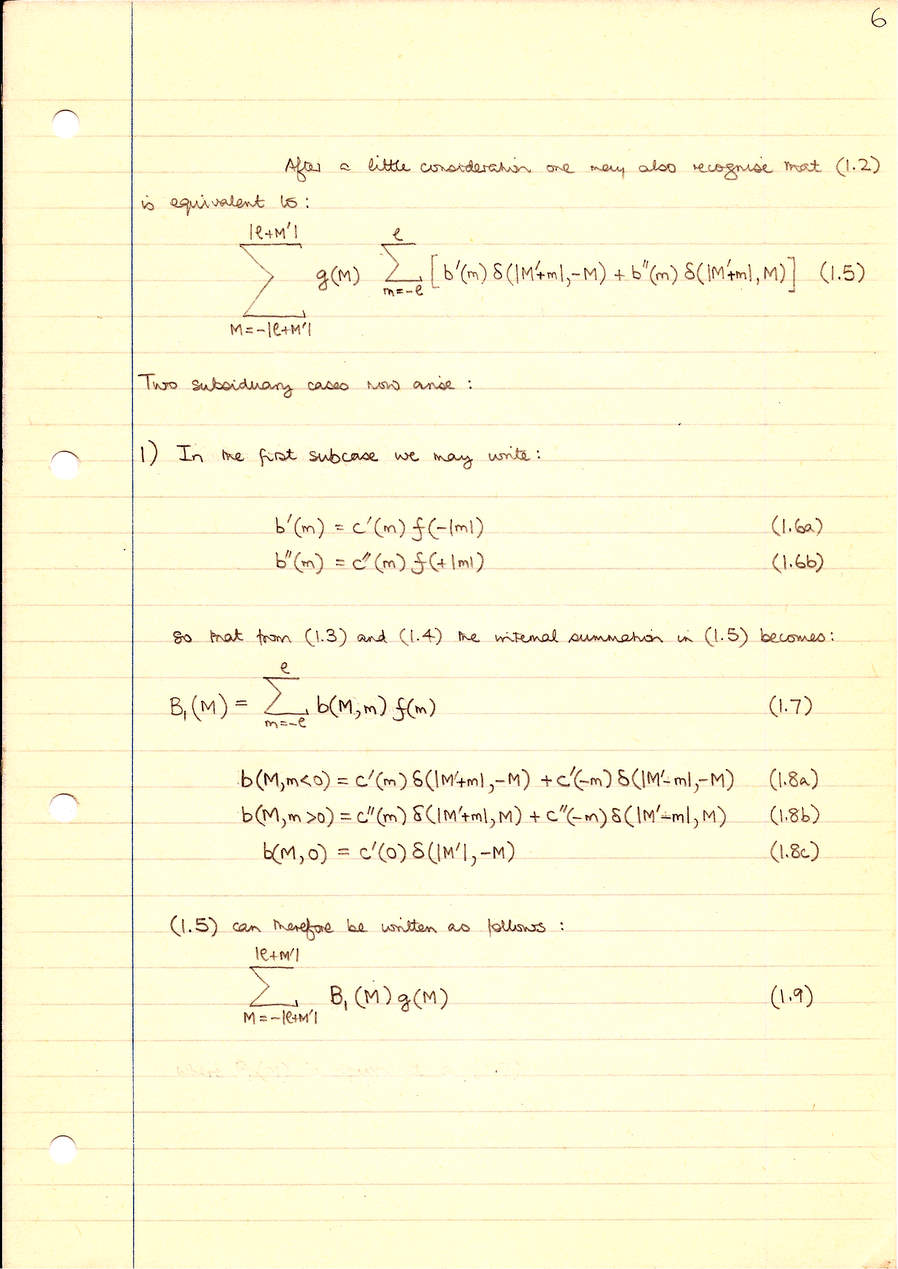 6
After a little consideration one may also recognise that (1.2)
is equivalent to:
|ℓ+M'|
∑ g(M) ∑ [b'(m) δ(|M'+m|,-M) + b''(m) δ(|M'+m|,M)] (1.5)
M=-|ℓ+M'| m=-ℓ ℓ
Two subsiduary cases now arise :
1) In the first subcase we may write :
b'(m) = c'(m) f(-|m|) (1.6a)
b''(m) = c''(m) f(+|m|) (1.6b)
so that from (1.3) and (1.4) the internal summation in (1.5) becomes :
ℓ
B₁(M) = ∑ b(M,m) f(m) (1.7)
m=-ℓ
b(M,m<0) = c'(m) δ(|M'+m|,-M) + c'(-m) δ(|M'-m|,-M) (1.8a)
b(M,m>0) = c''(m) δ(|M'+m|,M) + c''(-m) δ(|M'-m|,M) (1.8b)
b(M,0) = c'(0) δ(|M'|,-M) (1.8c)
(1.5) can therefore be written as follows :
|ℓ+M'|
∑ B₁(M) g(M) (1.9)
M=-|ℓ+M'|